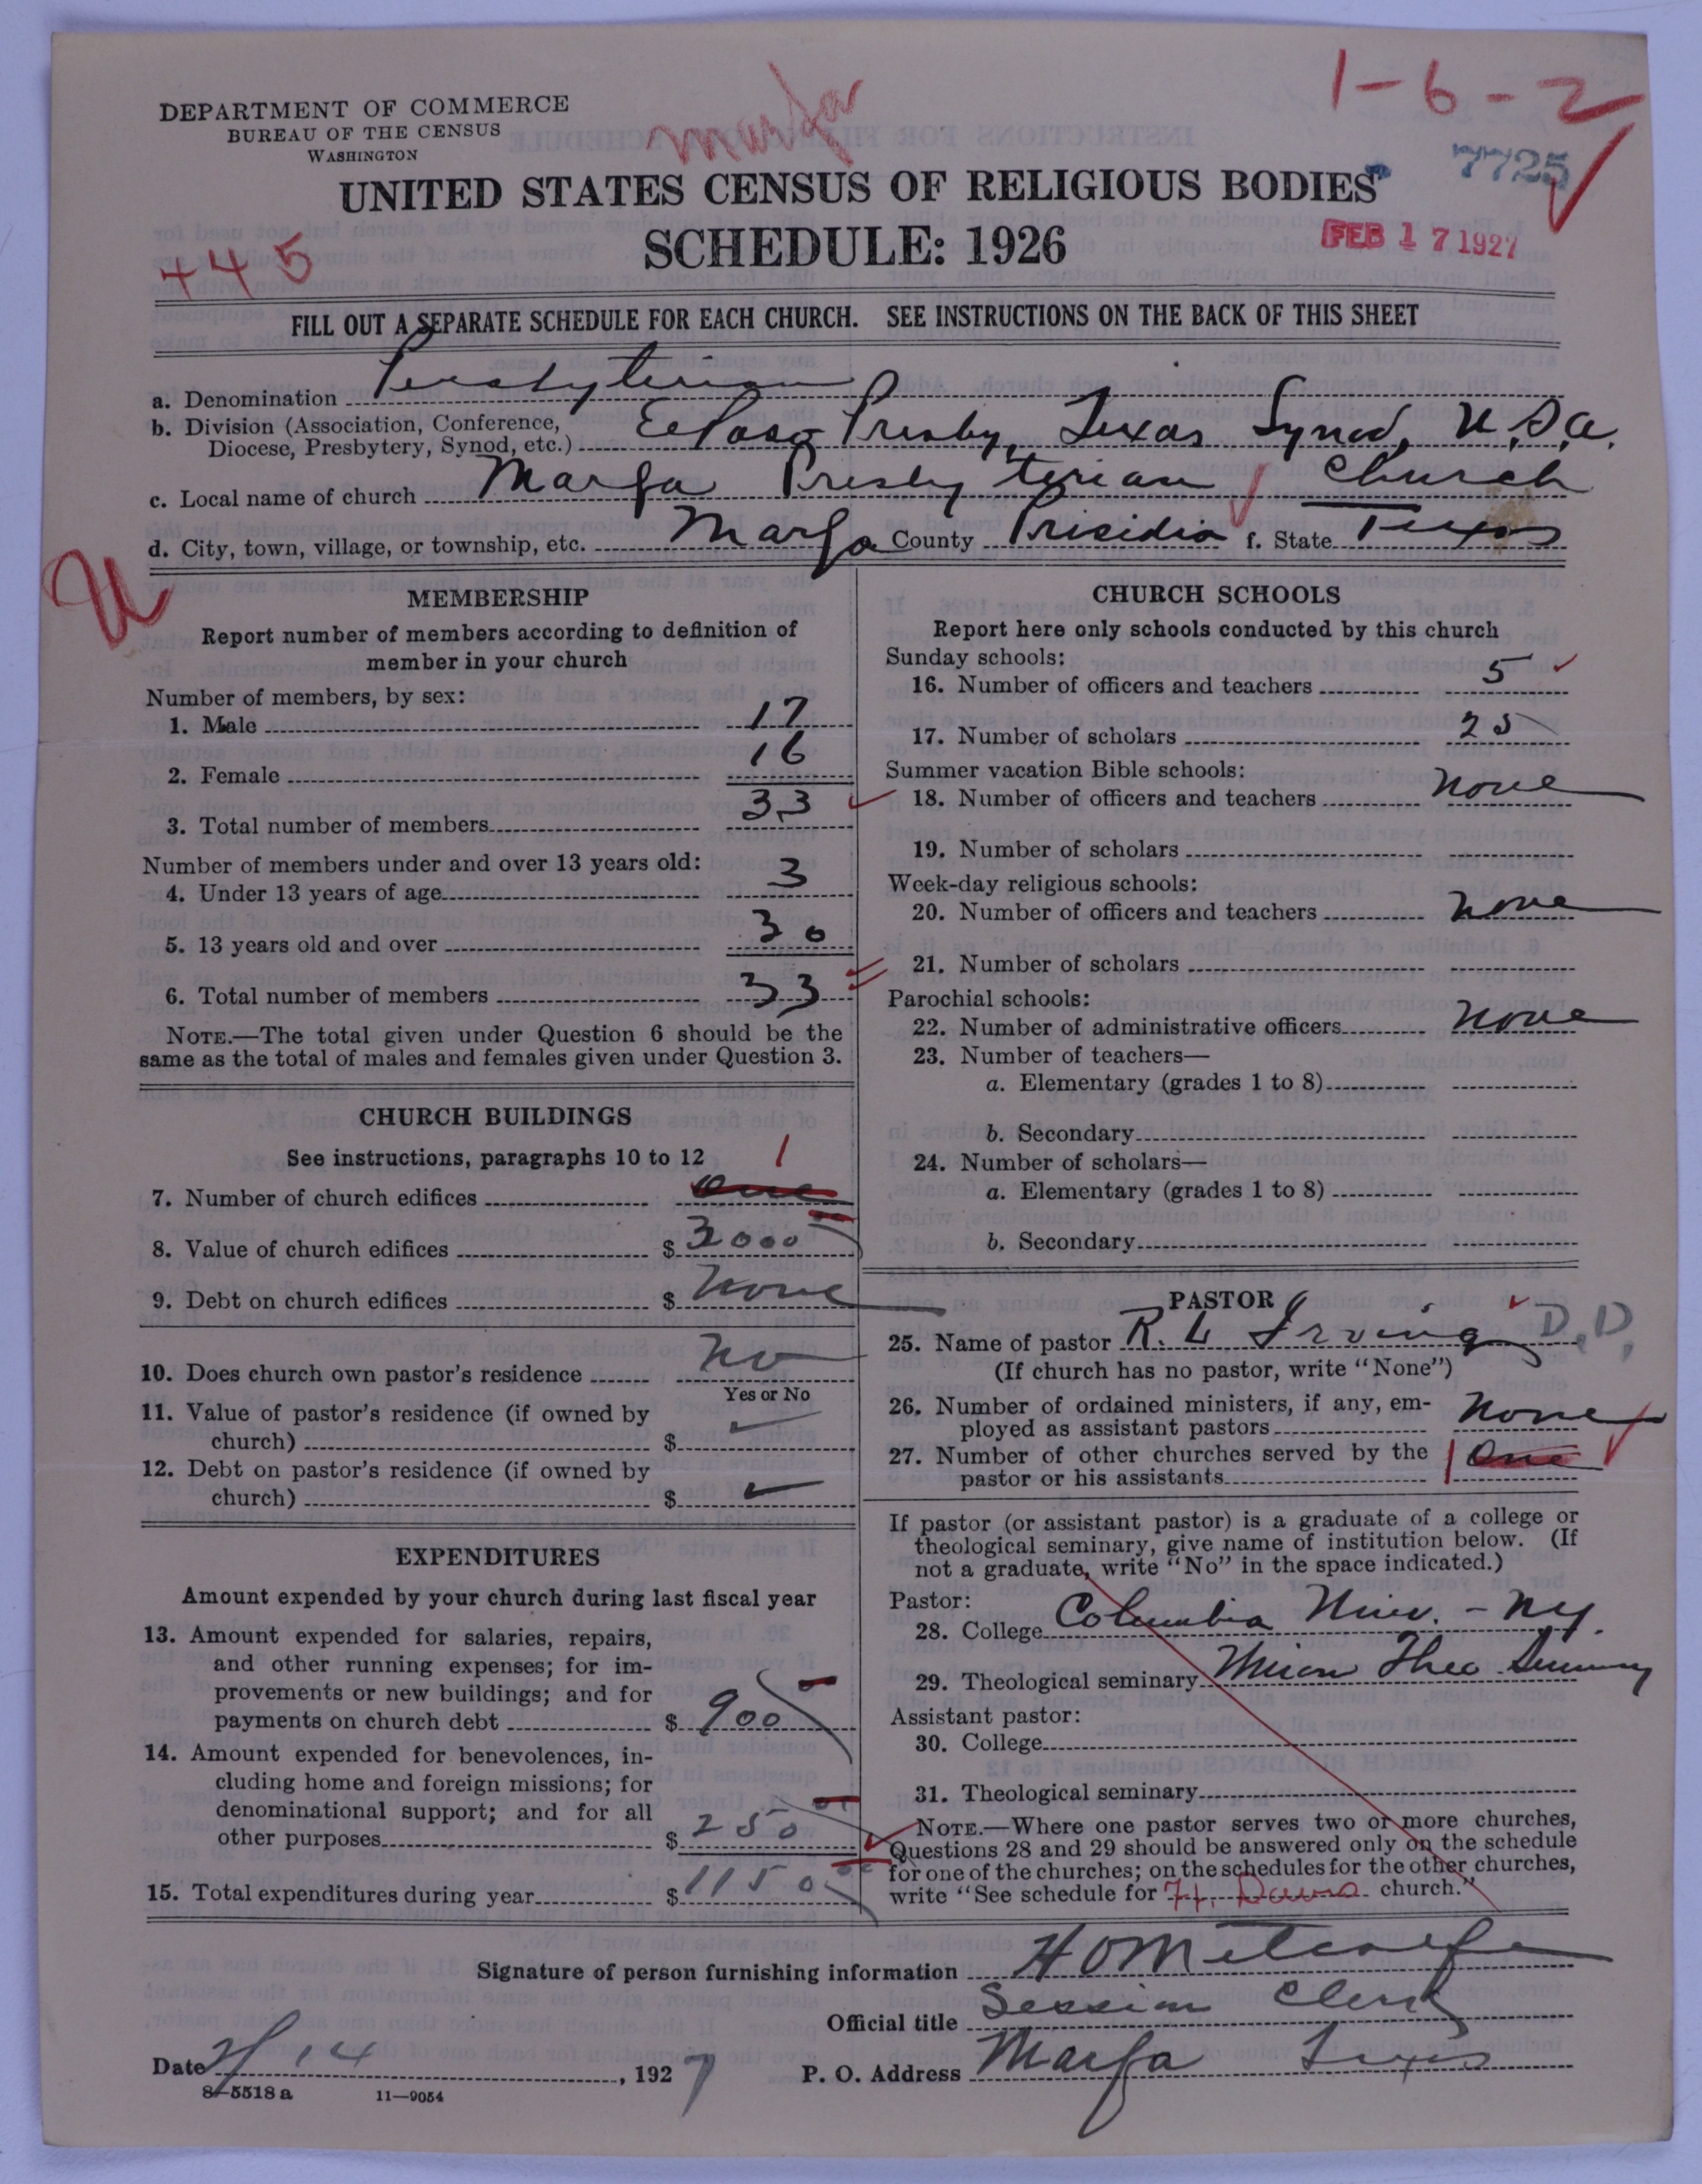 Marfa
1-6-2
DEPARTMENT OF COMMERCE
BUREAU OF THE CENSUS
WASHINGTON
7725
UNITED STATES CENSUS OF RELIGIOUS BODIES
SCHEDULE: 1926
FEB 17 1927
445
FILL OUT A SEPARATE SCHEDULE FOR EACH CHURCH. SEE INSTRUCTIONS ON THE BACK OF THIS SHEET
a. Denomination Presbyterian
b. Division (Association, Conference,
Diocese, Presbytery, Synod, etc.) El Paso Presby, Texas Synod, U.S.A.
c. Local name of church Marfa Presbyterian Church
d. City, town, village, or township, etc. Marfa County Presidio f. State Texas
U
MEMBERSHIP
Report number of members according to definition of
member in your church
Number of members, by sex:
1. Male 17
2. Female 16
3. Total number of members 33
Number of members under and over 13 years old:
4. Under 13 years of age 3
5. 13 years old and over 30
6. Total number of members 33
NOTE.—The total given under Question 6 should be the
same as the total of males and females given under Question 3.
CHURCH BUILDINGS
See instructions, paragraphs 10 to 12
1
7. Number of church edifices one
8. Value of church edifices $ 3000
9. Debt on church edifices $ None
10. Does church own pastor's residence No
Yes or No
11. Value of pastor's residence (if owned by
church) $
12. Debt on pastor's residence (if owned by
church) $
EXPENDITURES
Amount expended by your church during last fiscal year
13. Amount expended for salaries, repairs,
and other running expenses; for im-
provements or new buildings; and for
payments on church debt $ 900
14. Amount expended for benevolences, in-
cluding home and foreign missions; for
denominational support; and for all
other purposes $ 250
15. Total expenditures during year $ 1150
CHURCH SCHOOLS
Report here only schools conducted by this church
Sunday schools:
16. Number of officers and teachers 5
17. Number of scholars 25
Summer vacation Bible schools:
18. Number of officers and teachers None
19. Number of scholars
Week-day religious schools:
20. Number of officers and teachers None
21. Number of scholars
Parochial schools:
22. Number of administrative officers None
23. Number of teachers—
a. Elementary (grades 1 to 8)
b. Secondary
24. Number of scholars—
a. Elementary (grades 1 to 8)
b. Secondary
PASTOR
25. Name of pastor R. L. Irving D.D.
(If church has no pastor, write "None")
26. Number of ordained ministers, if any, em-
ployed as assistant pastors None
27. Number of other churches served by the
pastor or his assistants 1 One
If pastor (or assistant pastor) is a graduate of a college or
theological seminary, give name of institution below. (If
not a graduate, write "No" in the space indicated.)
Pastor:
28. College Columbia Univ. - NY.
29. Theological seminary Union Theo Seminary
Assistant pastor:
30. College
31. Theological seminary
NOTE.—Where one pastor serves two or more churches,
Questions 28 and 29 should be answered only on the schedule
for one of the churches; on the schedules for the other churches,
write "See schedule for Ft. Davis church."
Signature of person furnishing information H O Metcalfe
Official title Session Clerk
Date 2/14, 1927 P. O. Address Marfa Texas
8-5518 a 11—9054